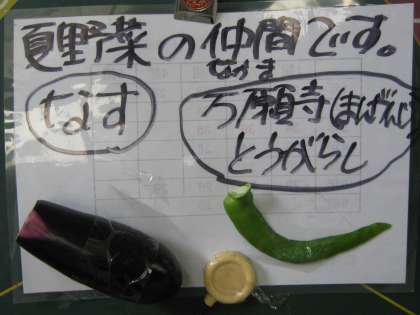 夏野菜の仲間です。
なかま
なす
万願寺(まんがんじ)
とうがらし